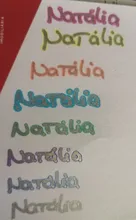 Natália
Natália
Natália
Natália
Natália
Natália
Natália
Natália